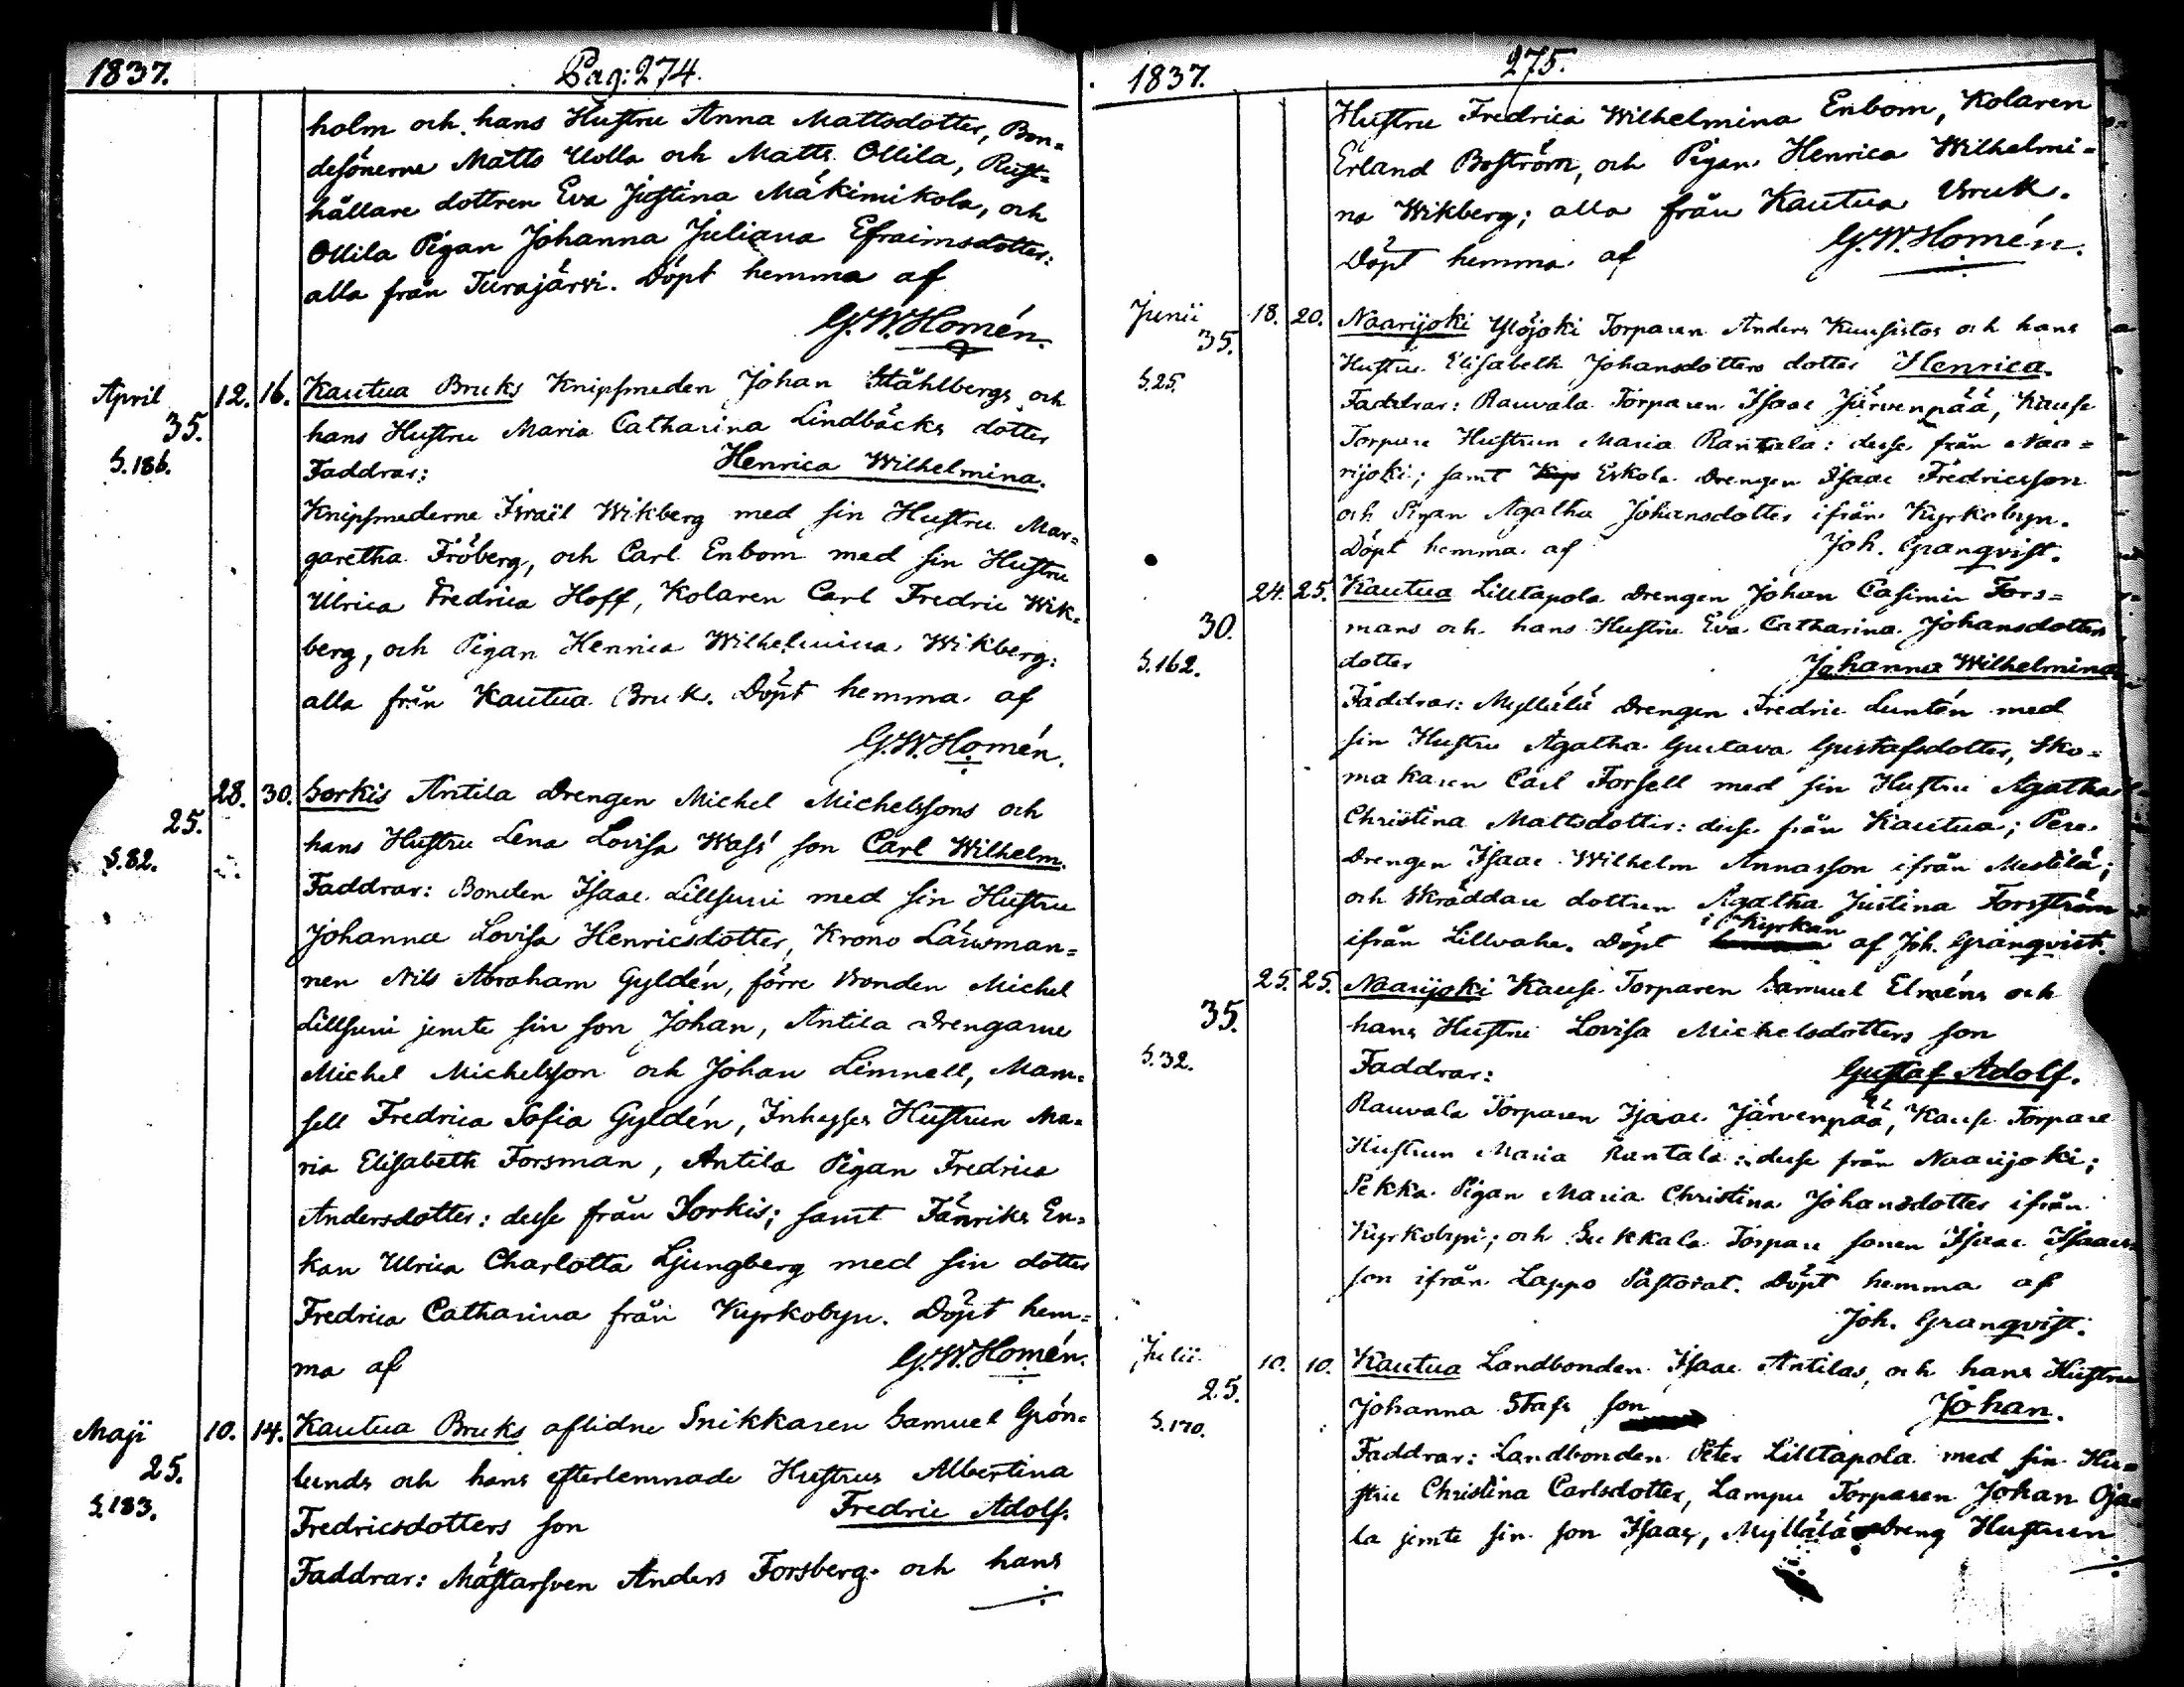 1837. Pag: 274.
holm och hans Hustru Anna Mattsdotter, Bon=
desönerne Matts Uolla och Matts Ollila, Rust=
hållare dottren Eva Justina Mäkimikola, och
Ollila Pigan Johanna Juliana Efraimsdotter:
alla från Turajärvi. Döpt hemma af
G.W. Homén.
April 35. S.186. 12. 16. Kautua Bruks Knipsmeden Johan Ståhlbergs och
hans Hustru Maria Catharina Lindbäcks dotter
Faddrar: Henrica Wilhelmina.
Knipsmederne Israël Wikberg med sin Hustru Mar=
garetha Fröberg, och Carl Enbom med sin Hustru
Ulrica Fredrica Hoff, Kolaren Carl Fredric Wik=
berg, och Pigan Henrica Wilhelmina Wikberg:
alla från Kautua Bruk. Döpt hemma af
G.W. Homén.
25. S.82. 28. 30. Sorkis Antila Drengen Michel Michelssons och
hans Hustru Lena Lovisa Wass' son Carl Wilhelm.
Faddrar: Bonden Isaac Lillsuni med sin Hustru
Johanna Lovisa Henricsdotter, Krono Länsman=
nen Nils Abraham Gyldén, förre Bonden Michel
Lillsuni jemte sin son Johan, Antila Drengarne
Michel Michelsson och Johan Limnell, Mam=
sell Fredrica Sofia Gyldén, Inhyses Hustrun Ma=
ria Elisabeth Forsman, Antila Pigan Fredrica
Andersdotter: desse från Sorkis; samt Fänriks En=
kan Ulrica Charlotta Ljungberg med sin dotter
Fredrica Catharina från Kyrkobyn. Döpt hem=
ma af G.W. Homén.
Maji 25. S.183. 10. 14. Kautua Bruks aflidne Snikkaren Samuel Grön=
lunds och hans efterlemnade Hustrus Albertina
Fredricsdotters son Fredric Adolf.
Faddrar: Mästarsven Anders Forsberg och hans
1837. 275.
Hustru Fredrica Wilhelmina Enbom, Kolaren
Erland Boström, och Pigan Henrica Wilhelmi=
na Wikberg; alla från Kautua Bruk.
Döpt hemma af G.W. Homén.
Junii 35. S.25. 18. 20. Naarijoki Yløjoki Torparen Anders Kuusistos och hans
Hustrus Elisabeth Johansdotters dotter Henrica.
Faddrar: Rauvala Torparen Isaac Järvenpää, Kause
Torpare Hustrun Maria Rantala: desse från Naa=
rijoki; samt Eskola Drengen Isaac Fredricsson
och Pigan Agatha Johansdotter ifrån Kyrkobyn.
Döpt hemma af Joh. Granqvist.
30. S.162. 24. 25. Kautua Lilltapola Drengen Johan Casimir Fors=
mans och hans Hustru Eva Catharina Johansdotters
dotter Johanna Wilhelmina
Faddrar: Myllälä Drengen Fredric Luntén med
sin Hustru Agatha Gustava Gustafsdotter, Sko=
makaren Carl Forsell med sin Hustru Agatha
Christina Mattsdotter: desse från Kautua; Pere
Drengen Isaac Wilhelm Annasson ifrån Mestilä;
och Skräddare dottren Agatha Justina Forsström
ifrån Lillvahe. Döpt i Kyrkan af Joh. Granqvist.
35. S.32. 25. 25. Naarijoki Kause Torparen Samuel Elméns och
hans Hustru Lovisa Michelsdotters son
Faddrar: Gustaf Adolf.
Rauvala Torparen Isaac Järvenpää, Kause Torpare
Hustrun Maria Rantala: desse från Naarijoki;
Pekka Pigan Maria Christina Johansdotter ifrån
Kyrkobyn; och Sukkala Torpare sonen Isaac Isaacs=
son ifrån Lappo Pastorat. Döpt hemma af
Joh. Granqvist.
Julii 25. S.170. 10. 10. Kautua Landbonden Isaac Antilas, och hans Hustru
Johanna Stass son Johan.
Faddrar: Landbonden Peter Lilltapola med sin Hu=
stru Christina Carlsdotter, Lampu Torparen Johan Oja=
la jemte sin son Isaac, Myllälä Dreng Hustrun